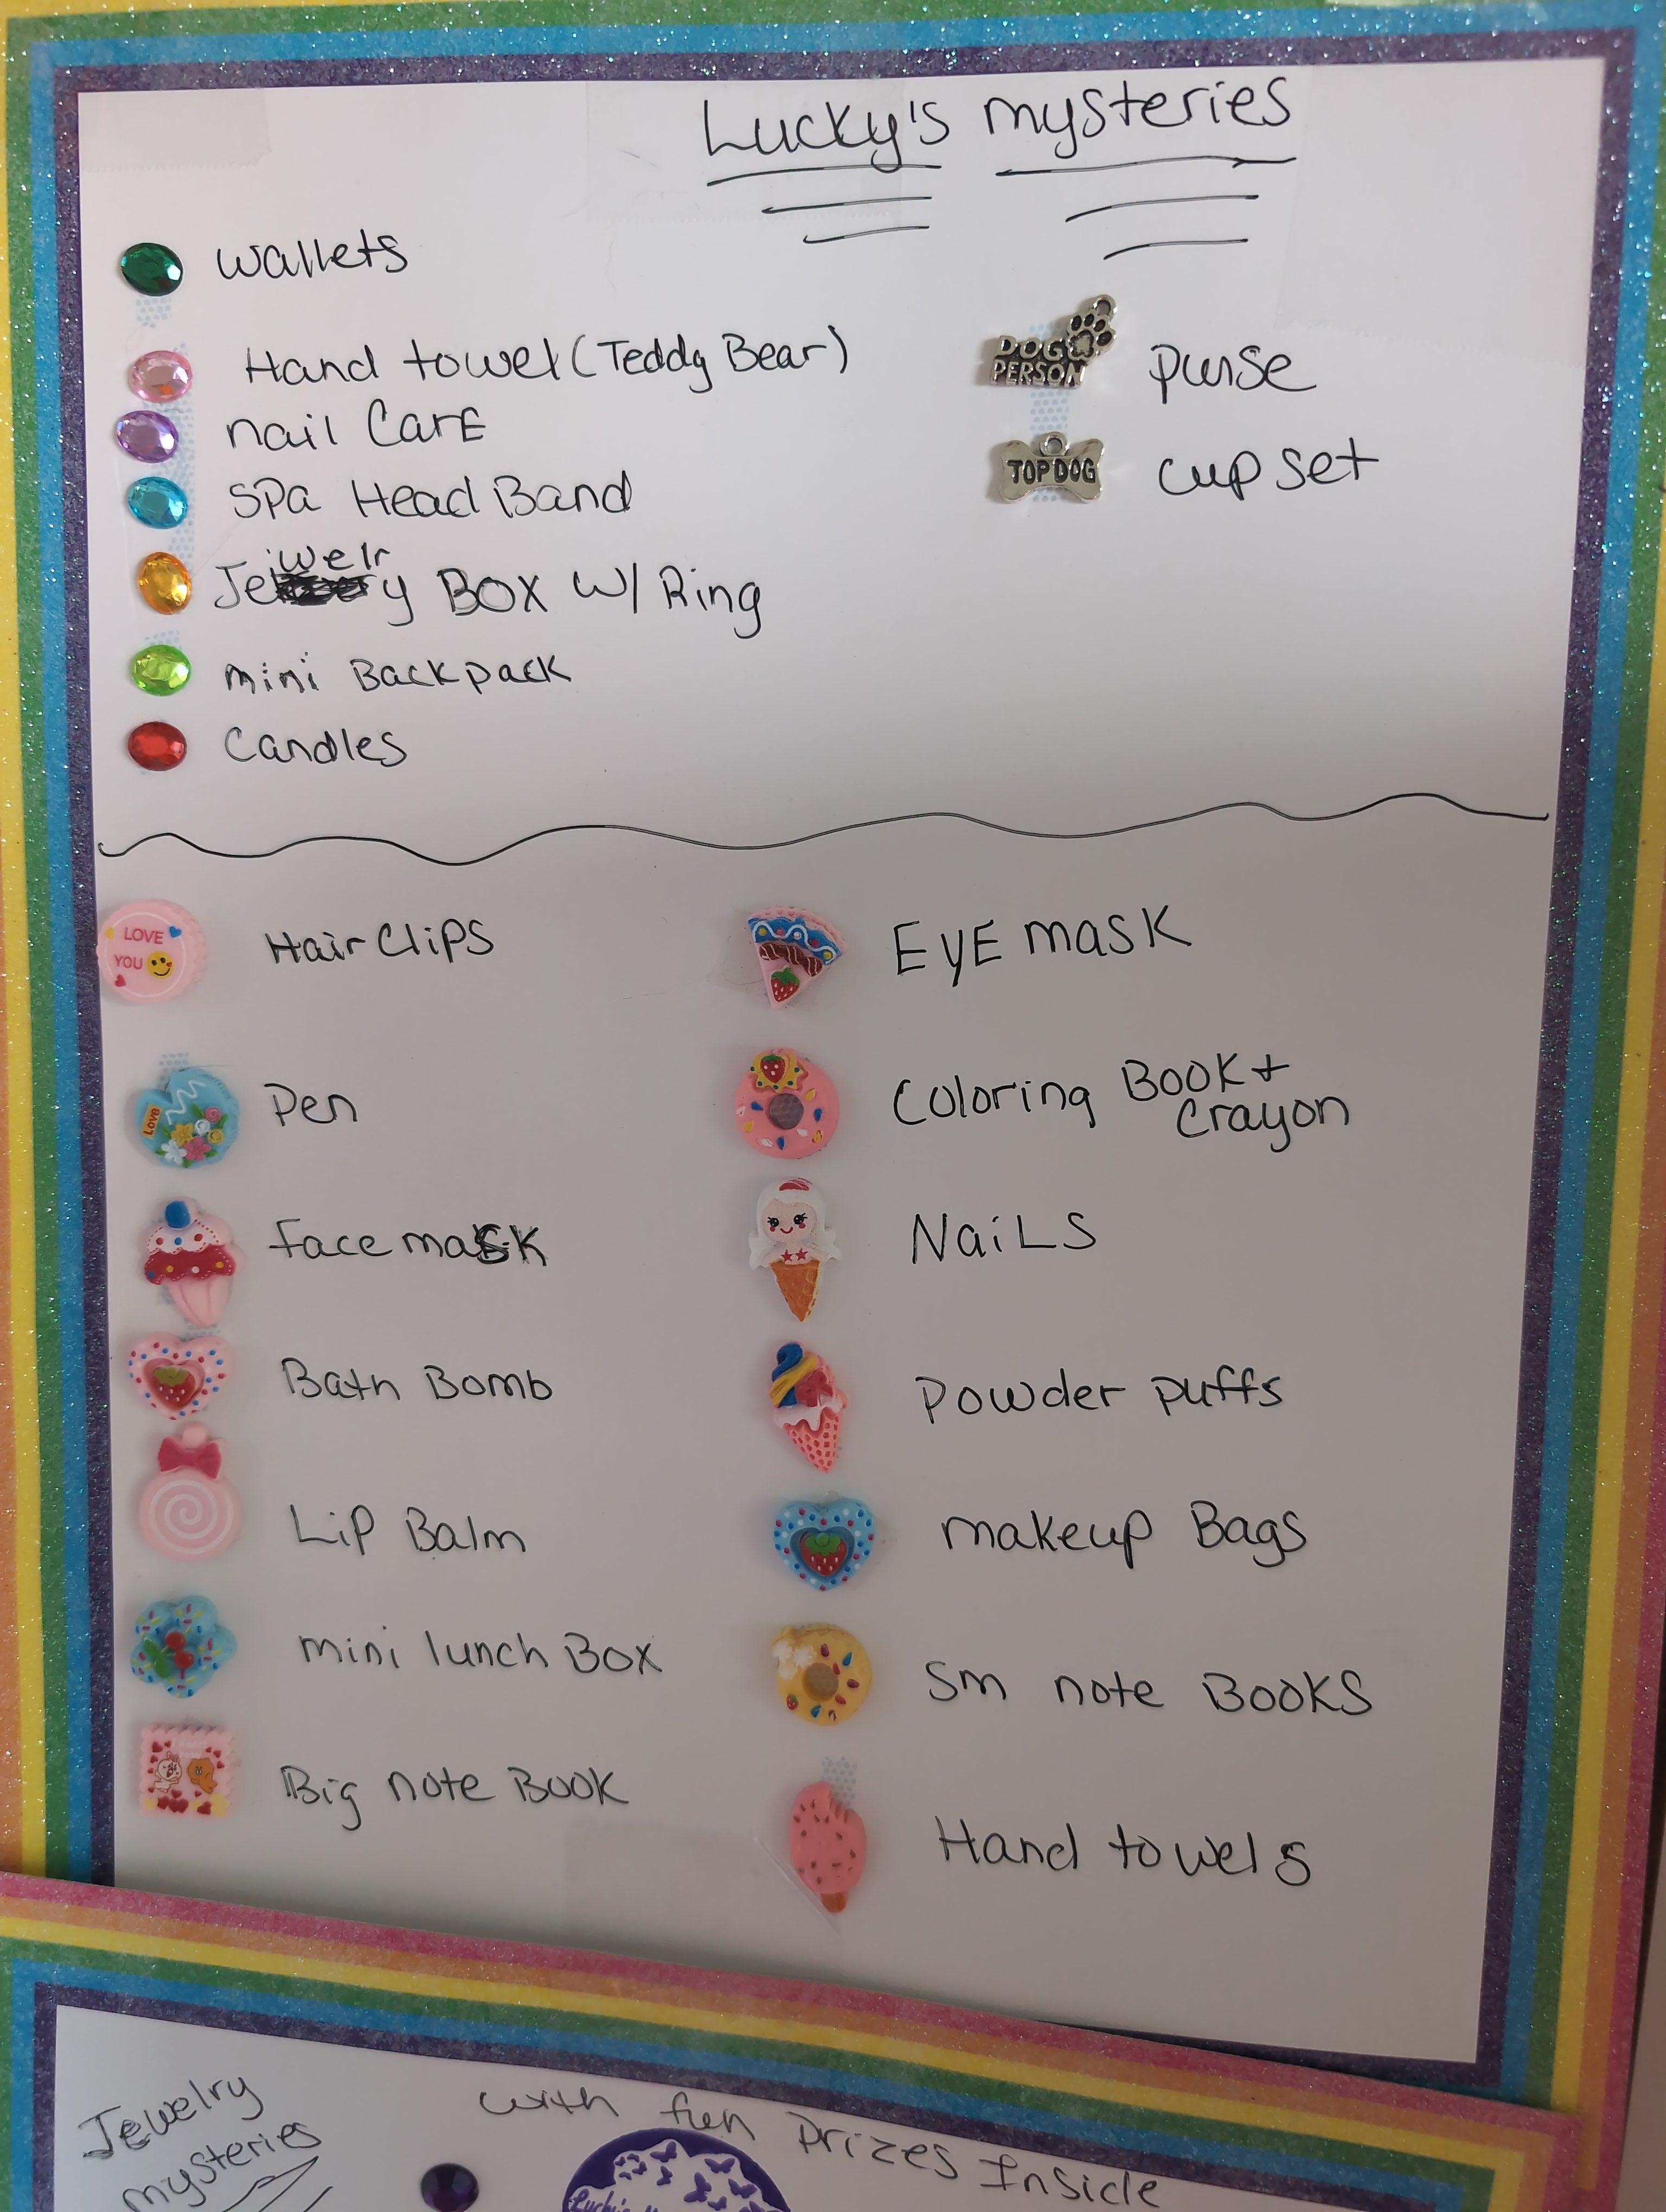 Lucky's mysteries
wallets
Hand towel (Teddy Bear)
nail CarE
SPa Head Band
Jewelry BOX W/ Ring
mini BackPack
Candles
DOG PERSON
purse
TOP DOG
cup set
LOVE
YOU
Hair Clips
Love
Pen
face mask
Bath Bomb
Lip Balm
mini lunch Box
Big note Book
EyE mask
Coloring Book +
Crayon
NaiLS
Powder puffs
makeup Bags
Sm note Books
Hand towels
Jewelry
mysteries
with fun Prizes Inside
Lucky's